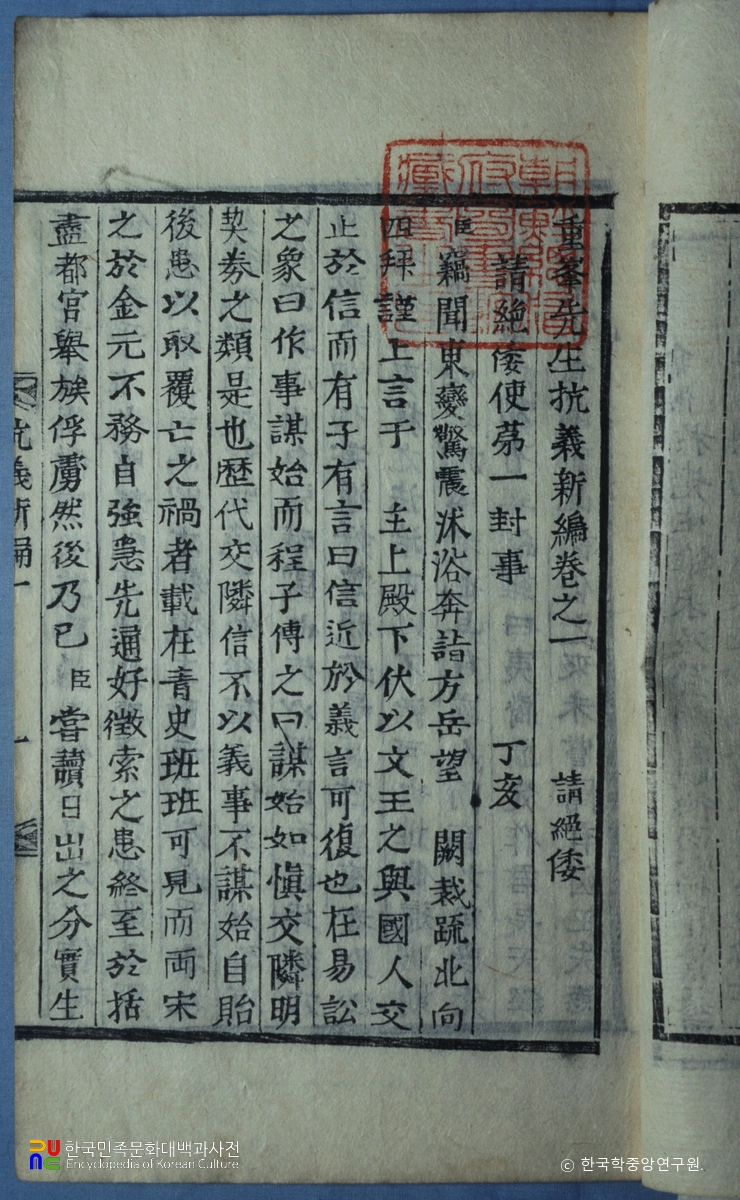 重峯先生抗義新編卷之一 請絕倭
請絶倭使苐一封事 丁亥
臣竊聞東變驚震沐浴奔詣方岳望 闕裁疏北向
四拜謹上言于 主上殿下伏以文王之與國人交
止於信而有子有言曰信近於義言可復也在易訟
之象曰作事謀始而程子傳之曰謀始如愼交隣明
契券之類是也歷代交隣信不以義事不謀始自貽
後患以取覆亡之禍者載在青史班班可見而両宋
之於金元不務自強急先通好徵索之患終至於括
盡都宮舉族俘虜然後乃已臣嘗讀日出之分實生
抗義新編一
一
한국민족문화대백과사전
Encyclopedia of Korean Culture
© 한국학중앙연구원.